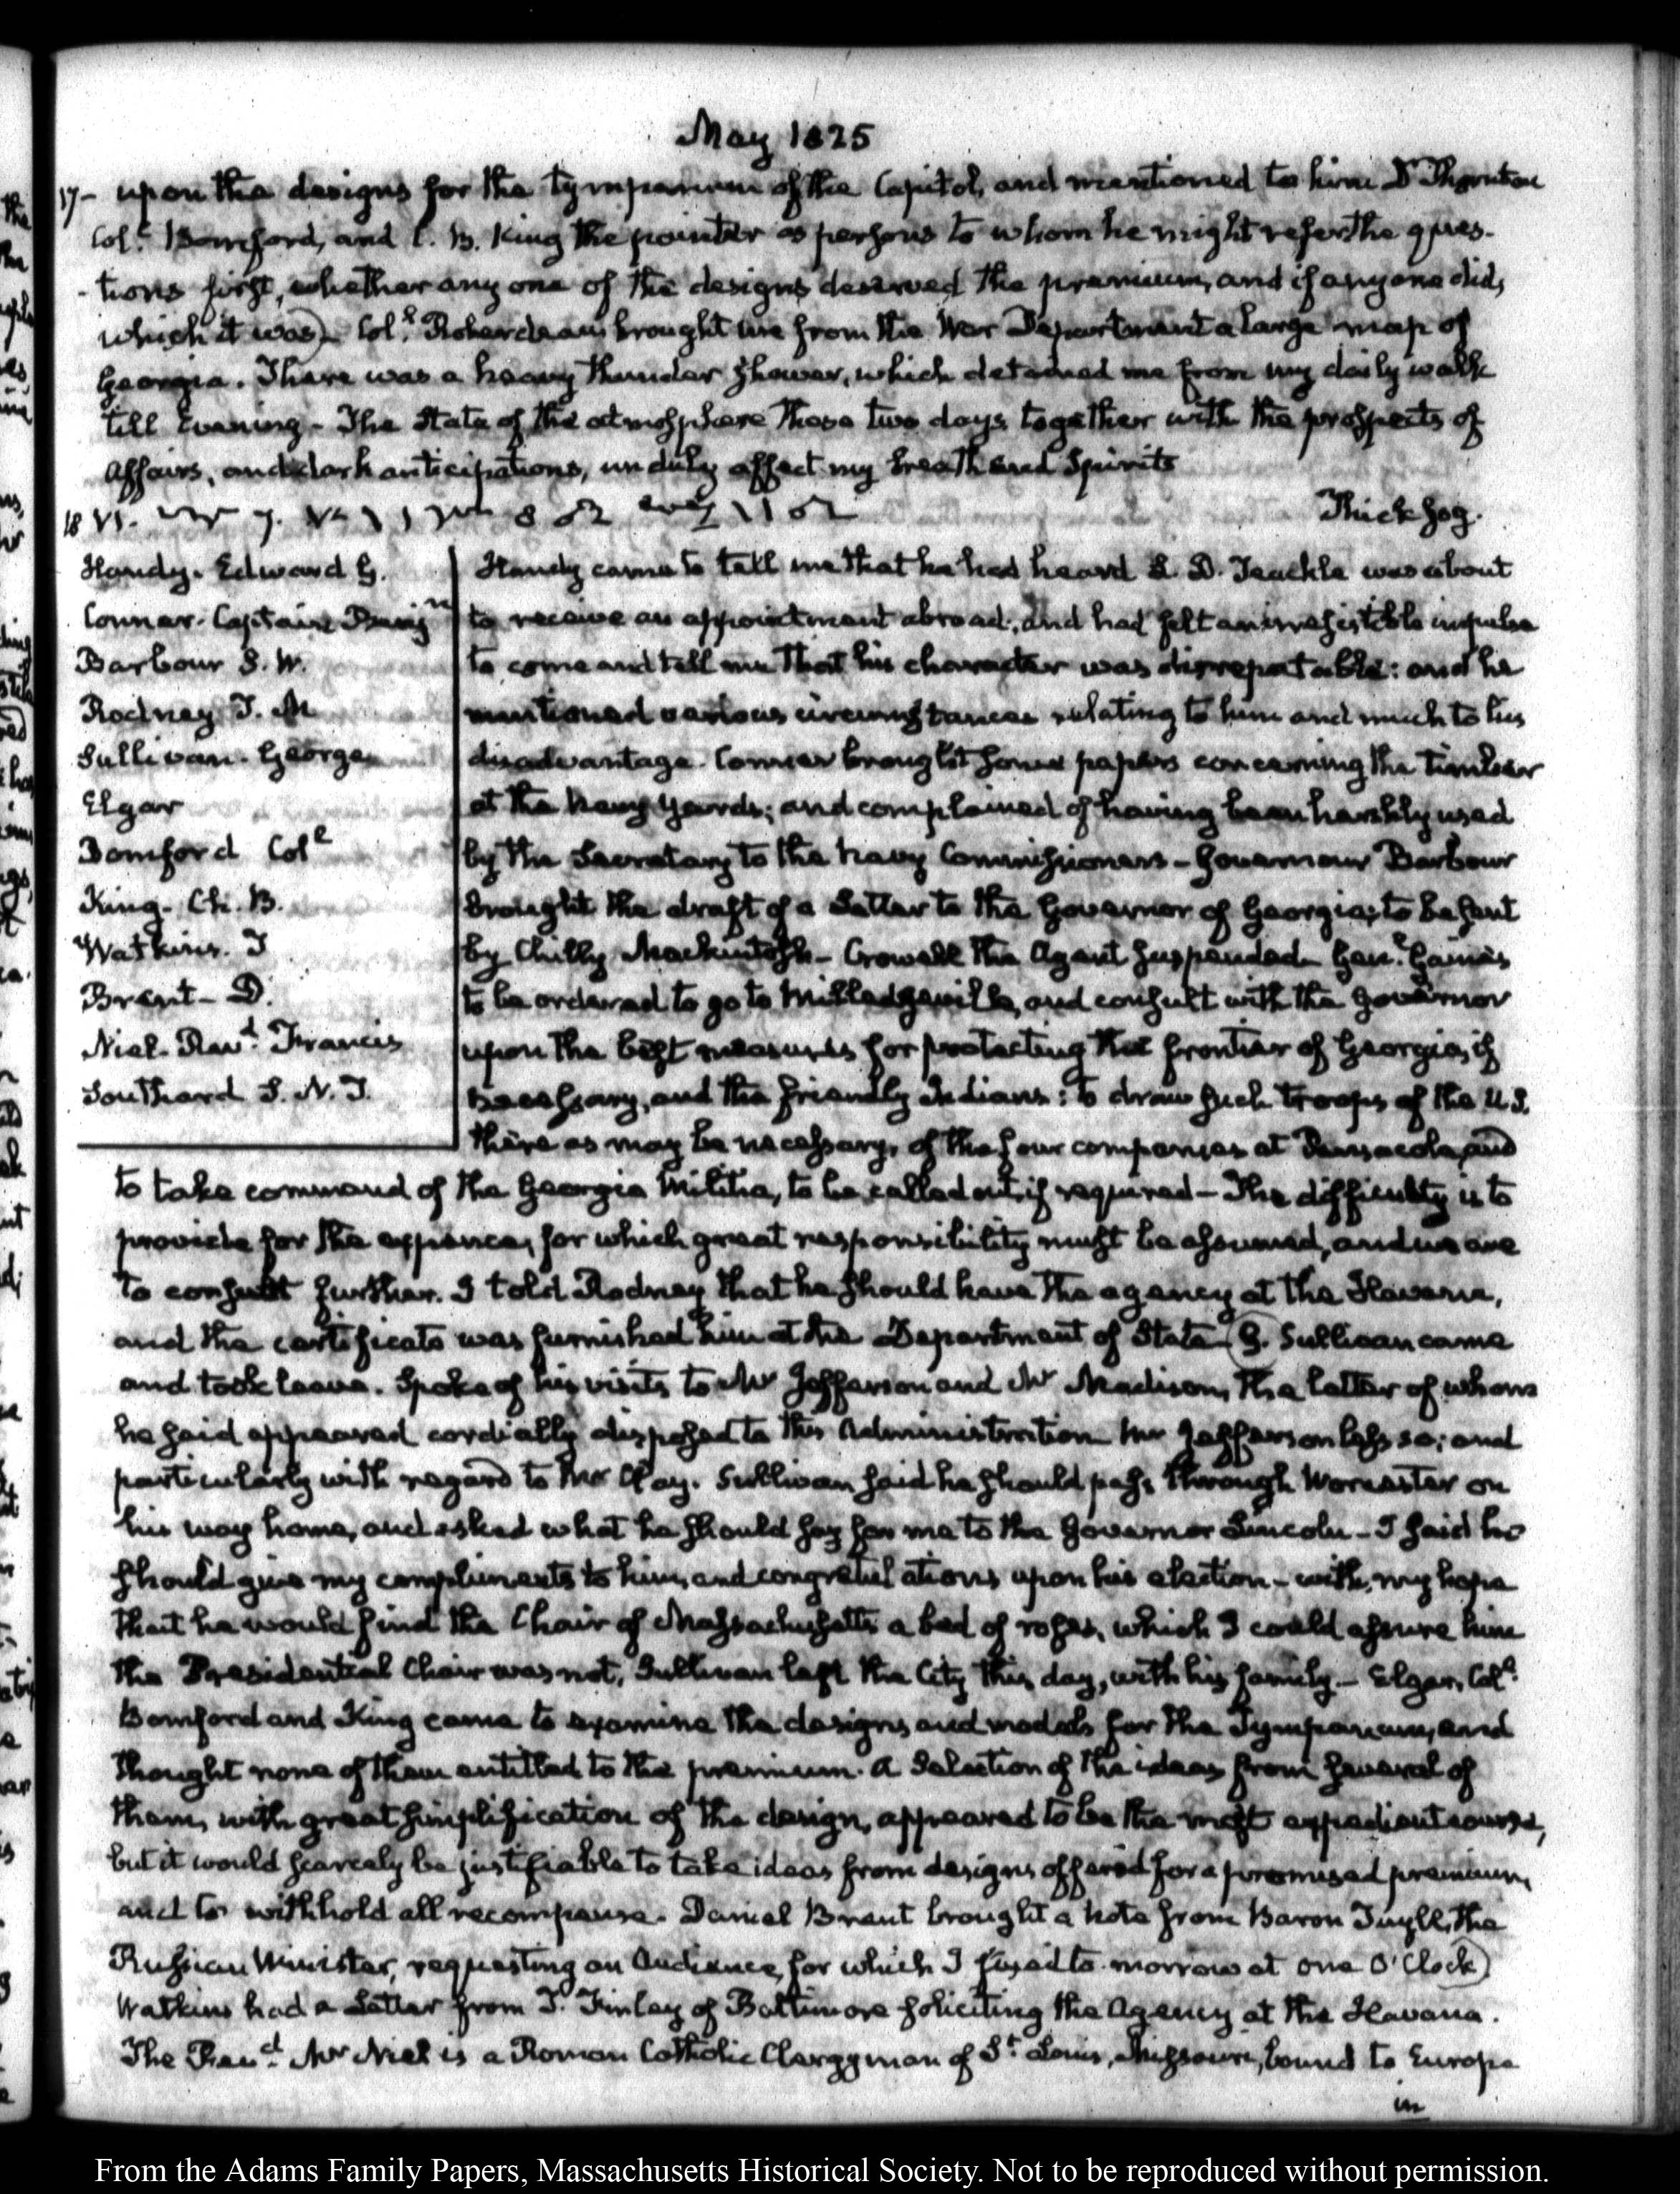 May 1825
17- upon the designs for the Tympanum of the Capitol, and mentioned to him Dr Thornton
Coll. Bomford, and C. B. King the painter as persons to whom he might refer the ques-
-tions first, whether any one of the designs deserved the premium, and if any one did,
which it was) Coll. Roberdeau brought me from the War Department a large map of
Georgia. There was a heavy thunder shower, which detained me from my daily walk
till Evening - The state of the atmosphere these two days together with the prospects of
Affairs, and dark anticipations, unduly affect my breath and Spirits
18 VI. Thick fog.
Handy. Edward G.
Conner. Captain
Barbour S. W.
Rodney T. M
Sullivan. George
Elgar
Bomford Coll
King. Ch. B.
Watkins. T
Brent - D.
Niel. Revd. Francis
Southard S. N. J.
Handy came to tell me that he had heard L. D. Teackle was about
to receive an appointment abroad, and had felt an irresistible impulse
to come and tell me that his character was disreputable: and he
mentioned various circumstances relating to him and much to his
disadvantage. Conner brought some papers concerning the timber
at the Navy Yards; and complained of having been harshly used
by the Secretary to the Navy Commissioners - Governour Barbour
brought the draft of a Letter to the Governor of Georgia; to be sent
by Chilly Mackintosh - Crowell the Agent suspended - Genl. Gaines
to be ordered to go to Milledgeville, and consult with the Governor
upon the best measures for protecting the frontier of Georgia, if
necessary, and the friendly Indians: to draw such troops of the U.S.
there as may be necessary, of the four companies at Pensacola, and
to take command of the Georgia Militia, to be called out, if required - The difficulty is to
provide for the expence, for which great responsibility must be assumed, and we are
to consult further. I told Rodney that he should have the agency at the Havana,
and the certificate was furnished him at the Department of State - G. Sullivan came
and took leave. Spoke of his visits to Mr Jefferson and Mr Madison, the latter of whom
he said appeared cordially disposed to this Administration Mr Jefferson less so; and
particularly with regard to Mr Clay. Sullivan said he should pass through Worcester on
his way home, and asked what he should say for me to the Governor Lincoln - I said he
should give my compliments to him, and congratulations upon his election - with, my hope
that he would find the Chair of Massachusetts a bed of roses, which I could assure him
the Presidential Chair was not, Sullivan left the City this day, with his family - Elgar, Coll.
Bomford and King came to examine the designs and models for the Tympanum, and
thought none of them entitled to the premium. A Selection of the ideas from several of
them, with great simplification of the design, appeared to be the most expedient course,
but it would scarcely be justifiable to take ideas from designs offered for a promised premium,
and to withhold all recompense. Daniel Brent brought a Note from Baron Tuyll, the
Russian Minister, requesting an Audience, for which I fixed to-morrow at one O'Clock)
Watkins had a Letter from T. Finlay of Baltimore soliciting the Agency at the Havana.
The Revd. Mr Niel is a Roman Catholic Clergyman of St. Louis, Missouri, bound to Europe
in
From the Adams Family Papers, Massachusetts Historical Society. Not to be reproduced without permission.